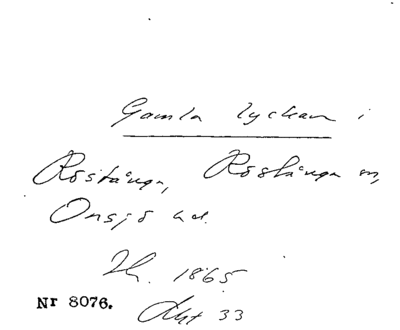 Gamla lyckan i
Röstånga, Röstånga sn,
Onsjö hd.
1865
Nr 8076.
Akt 33